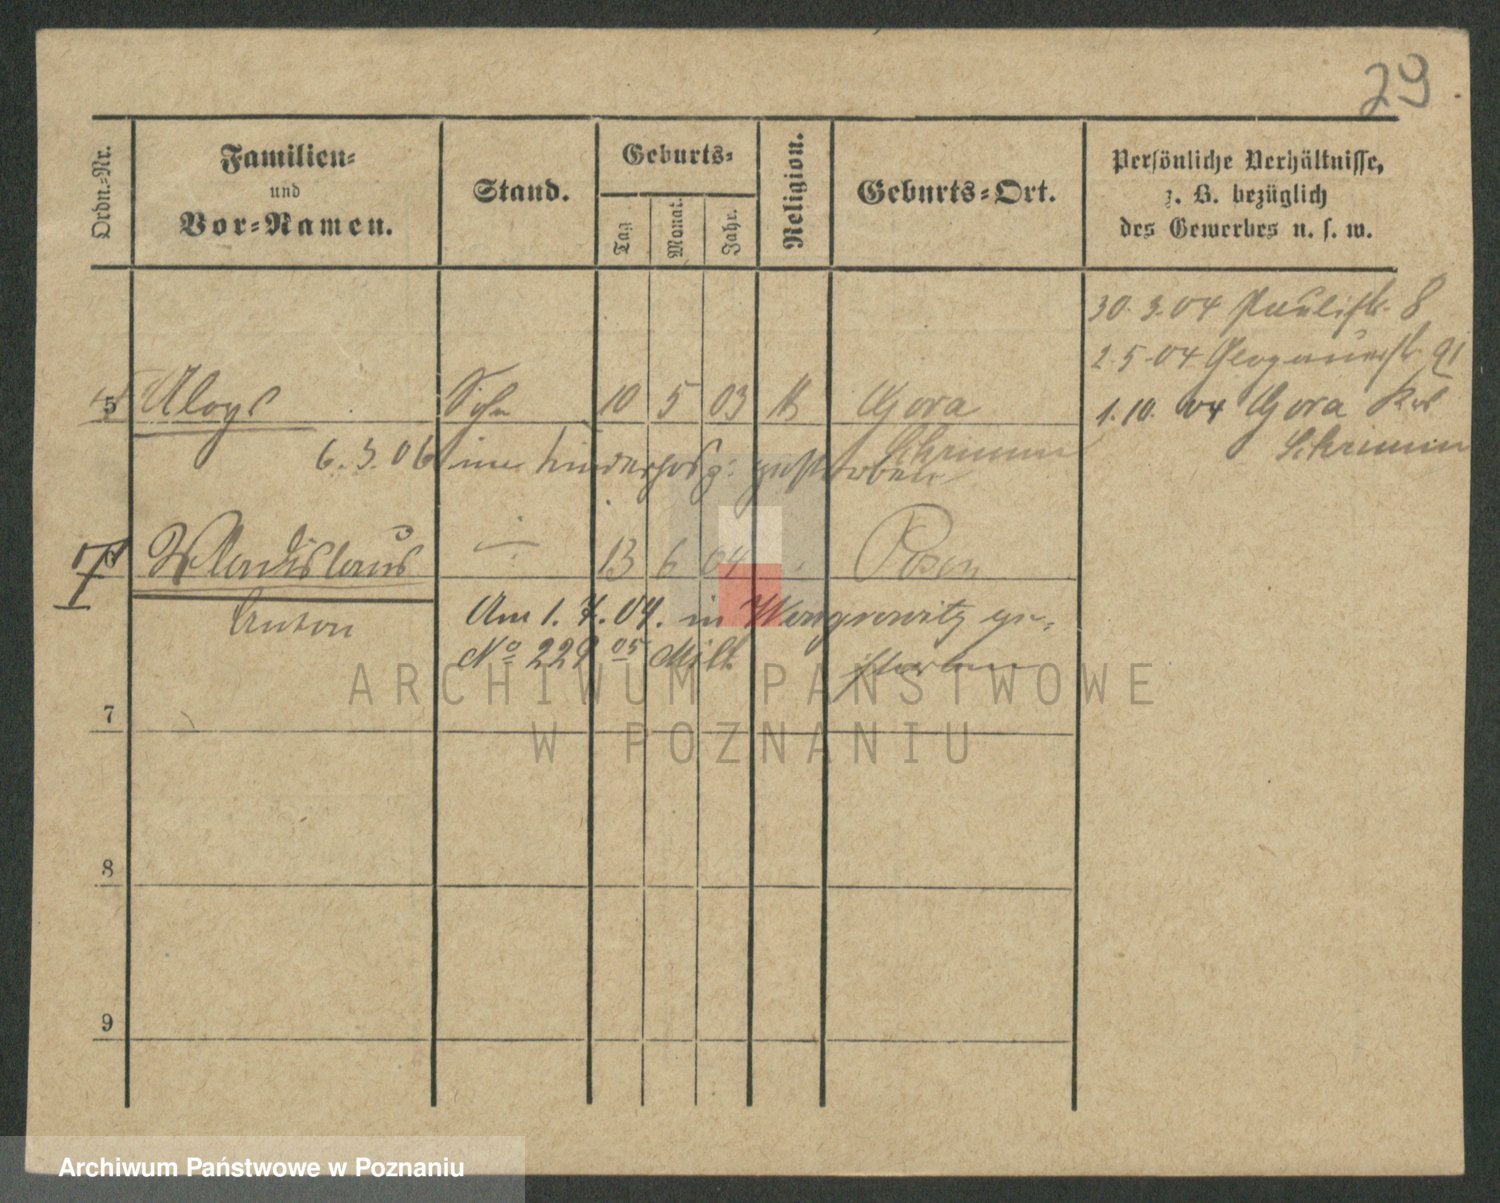 29
Ordn.-Nr.
Familien-
und
Vor-Namen.
Stand.
Geburts-
Tag
Monat.
Jahr.
Religion.
Geburts-Ort.
Persönliche Verhältnisse,
z. B. bezüglich
des Gewerbes u. s. w.
30. 3. 04 Paulistr. 8
2. 5. 04 Glogauerstr. 91
5 Aloys Sohn 10 5 03 k Gora
1. 10. 04 Gora Krs
Schrimm
Schrimm
6. 3. 06 im gestorben
Wladislaus 13 6 04 Posen
Anton
Am 1. 7. 04. in Wongrowitz ge-
storben
No 229 05
7
8
9
ARCHIWUM PAŃSTWOWE
W POZNANIU
Archiwum Państwowe w Poznaniu